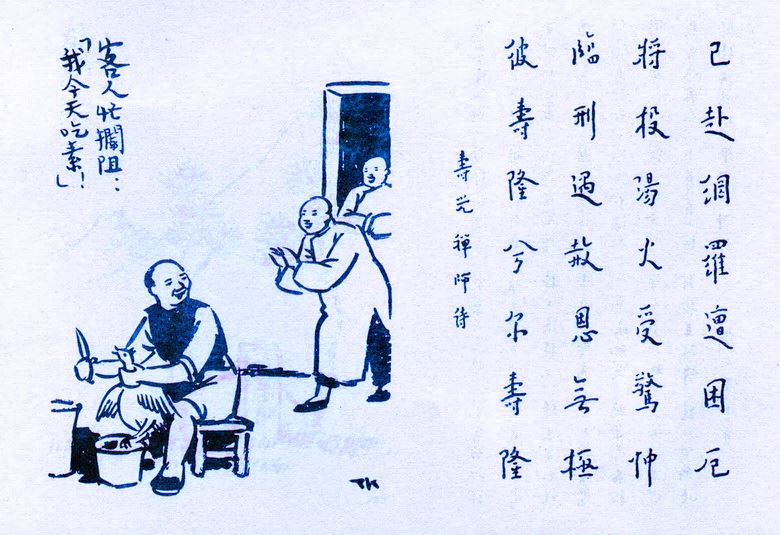 已赴網羅遭困厄
將投湯火受驚忡
臨刑遇赦恩無極
彼壽隆兮尔壽隆
壽光禪師詩
客人忙攔阻：
「我今天吃素！」
TK